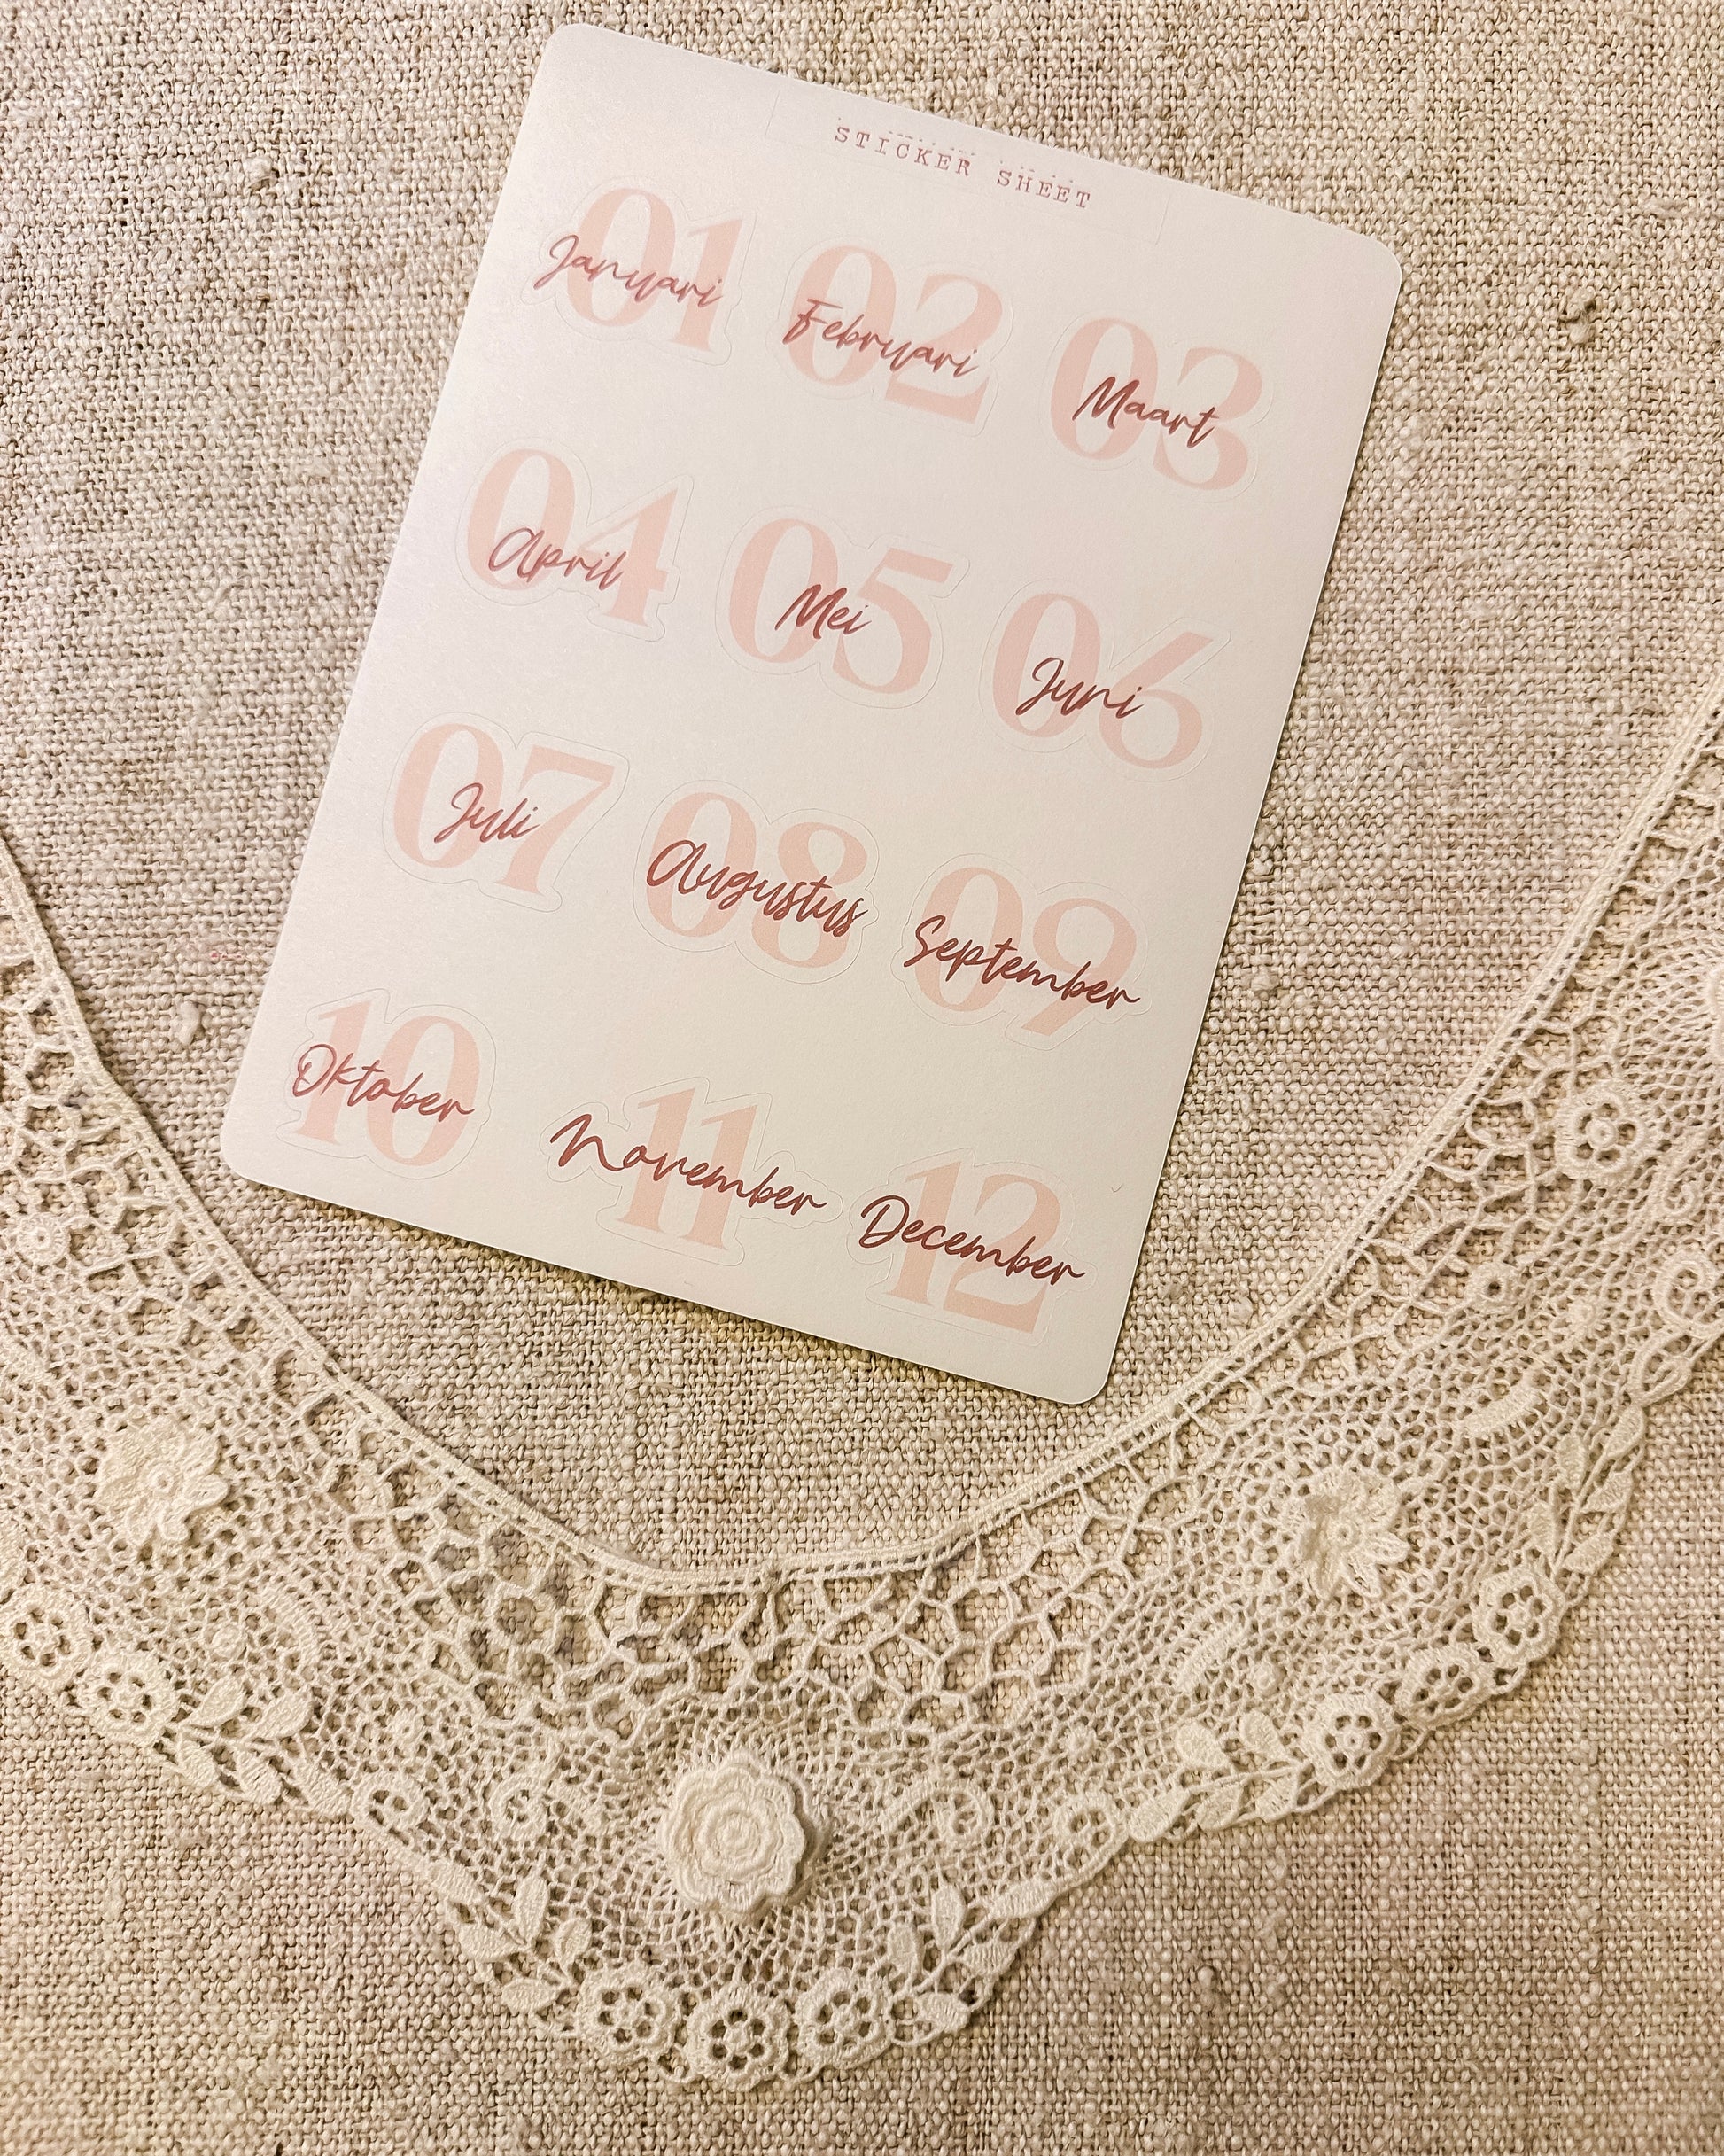 STICKER SHEET
01 Januari
02 Februari
03 Maart
04 April
05 Mei
06 Juni
07 Juli
08 Augustus
09 September
10 Oktober
11 November
12 December